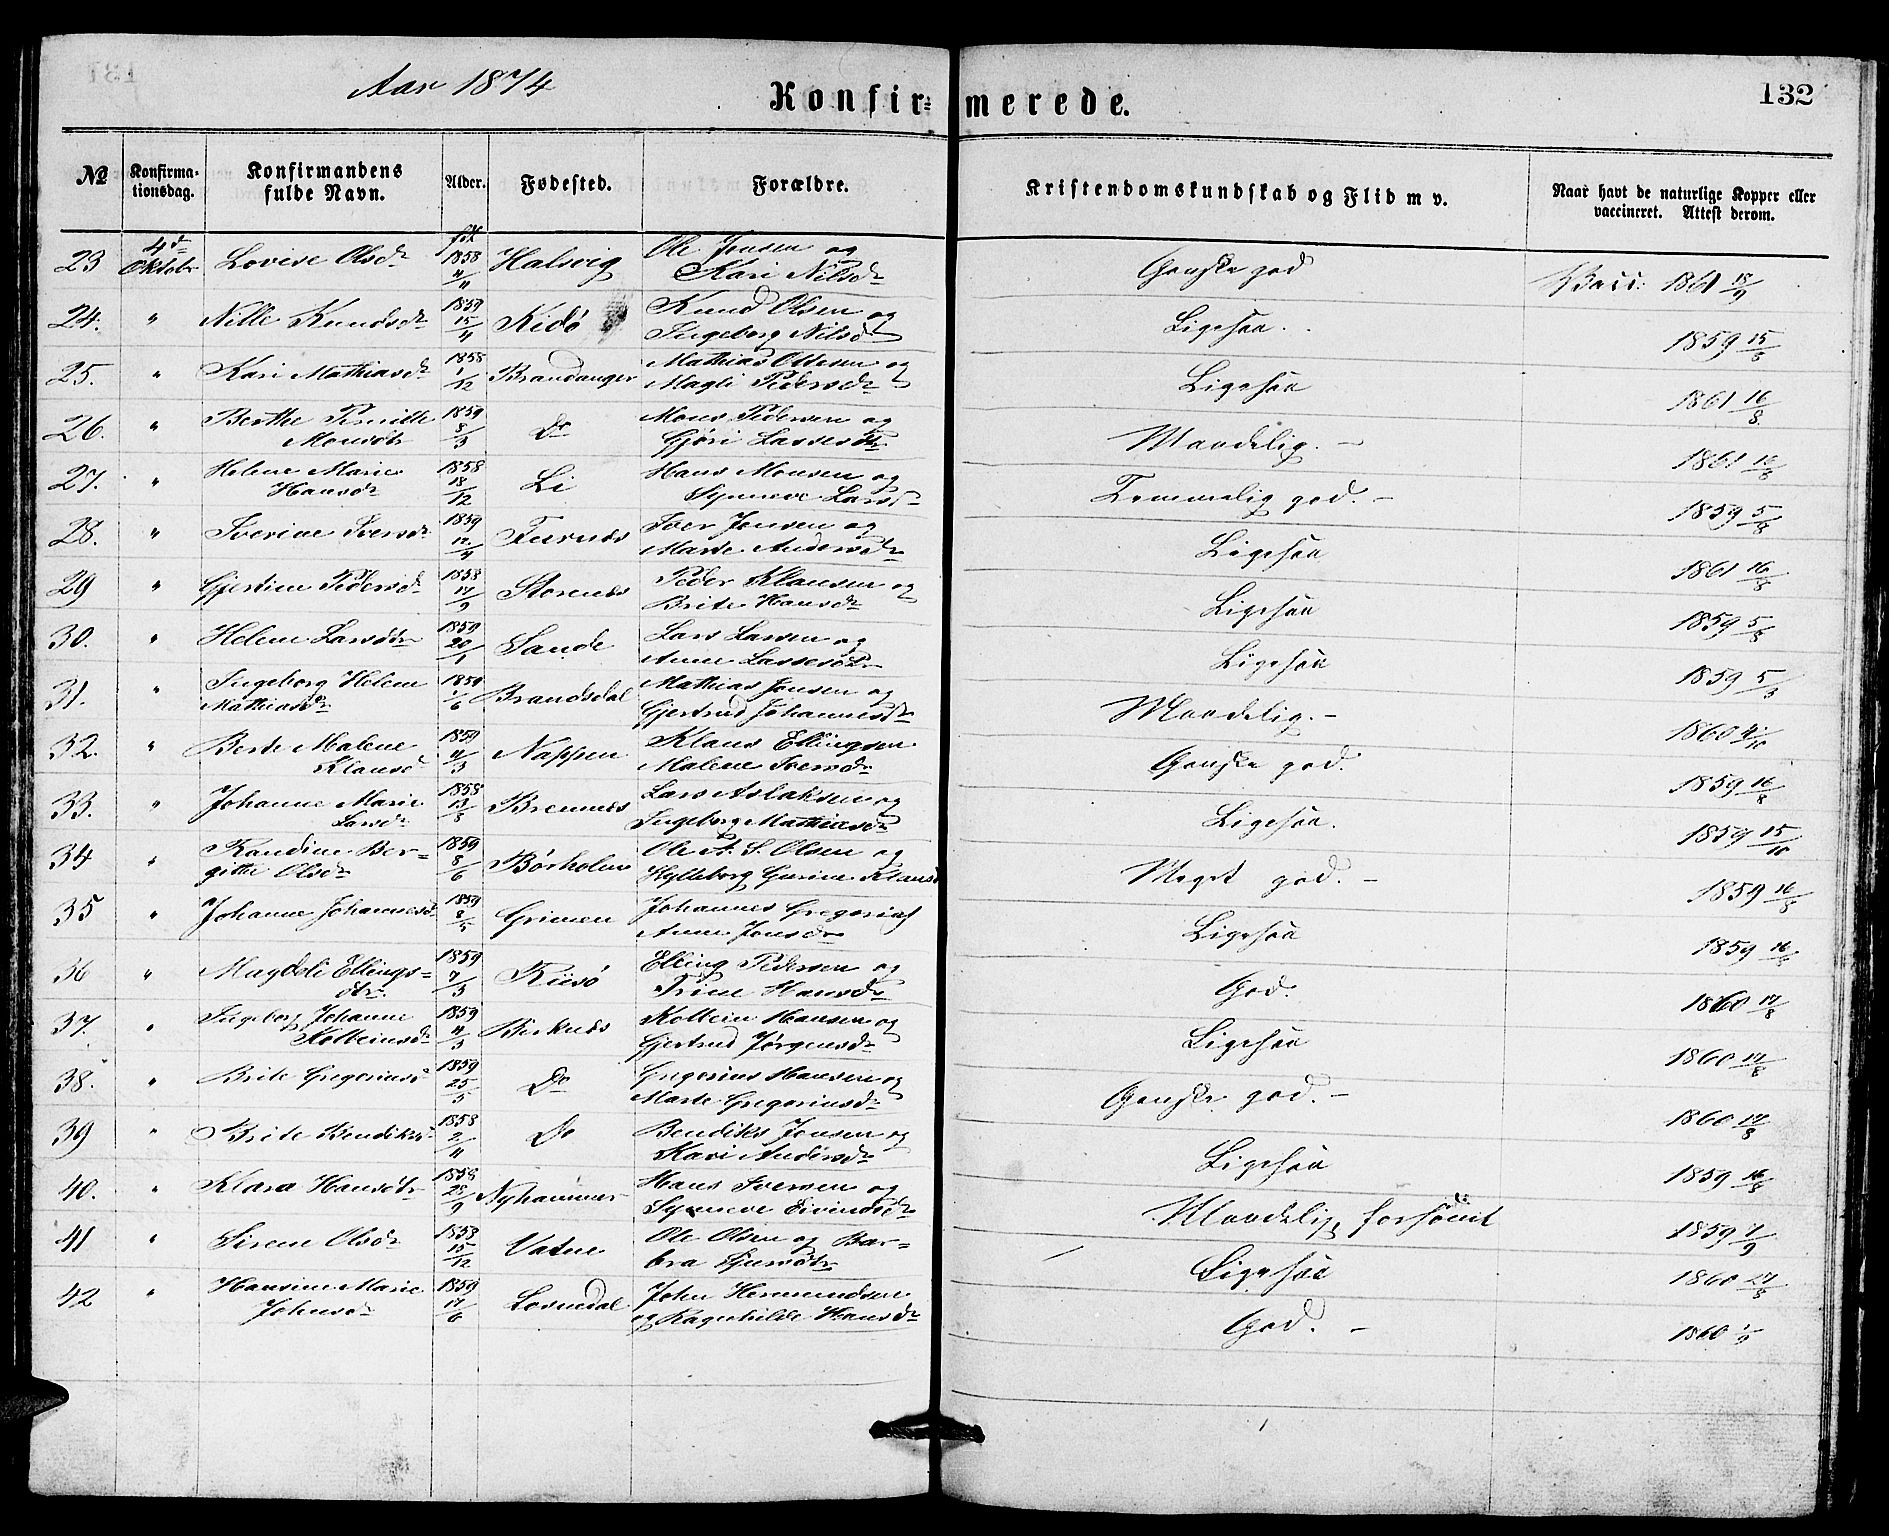 Aar 1874
Konfirmerede.
132
No
Konfirma-
tionsdag.
Konfirmandens
fulde Navn.
Alder.
Fødested.
Forældre.
Kristendomskundskab og Flid m v.
Naar havt de naturlige Kopper eller
vaccineret. Attest derom.
23 4de Oktobr Lovise Olsdr født 1858 4/11 Halsvig Ole Jensen og
Kari Nilsdr Ganske god Vacc: 1861 18/9
24. " Nille Knudsdr 1859 15/4 Kidø Knud Olsen og
Ingeborg Nilsd Ligesaa. 1859 15/8
25. " Kari Mathiasdr 1858 1/12 Brandanger Mathias Ottesen og
Magli Pedersdr Ligesaa 1861 16/8
26. " Berthe Pernille
Monsdtr 1859 8/3 Do Mons Pedersen og
Gjøri Lassesdtr Maadelig. – 1861 16/8
27. " Helene Marie
Hansdr 1858 18/12 Li Hans Monsen og
Synneve Larsd Temmelig god. – 1859 5/8
28. " Iverine Iversdr 1859 12/4 Furnes Iver Jensen og
Marte Andersdr Ligesaa 1861 16/8
29 " Gjertine Pedersd 1858 17/9 Storenes Peder Klausen og
Brite Hansdr Ligesaa 1859 5/8
30. " Helene Larsdtr 1859 20/1 Sande Lars Larsen og
Anne Lassesdtr Ligesaa 1859 5/8
31. " Ingeborg Helene
Mathiasdr 1859 1/6 Brandsdal Mathias Jensen og
Gjertrud Johannesdr Maadelig. – 1860 4/10
32. " Berte Malene
Klausd 1859 4/3 Nappen Klaus Ellingsen
Malene Iversdr Ganske god. 1859 16/8
33. " Johanne Marie
Larsdr 1858 13/8 Brennes Lars Aslaksen og
Ingeborg Mathiasdr Ligesaa. 1859 15/10
34 " Randine Ber-
gitte Olsdr 1859 8/6 Børholm Ole A. S. Olsen og
Hylleborg Gurine Klausd Meget god. – 1859 16/8
35 " Johanne Johannesd 1859 8/5 Grimen Johannes Gregorius
Anne Jensdr Ligesaa 1859 16/8
36 " Magdeli Ellings-
dtr. 1859 7/3 Riisø Elling Pedersen og
Trine Hansdr God. 1860 17/8
37. " Ingeborg Johanne
Kolbeinsdr 1859 4/3 Birknes Kolbein Hansen og
Gjertrud Jørgensdr Ligesaa 1860 17/8
38. " Brite Gregoriusd 1859 25/5 Do Gregorius Hansen og
Marte Gregoriusdr Ganske god. – 1860 17/8
39 " Brite Bendiksd 1858 2/11 Do Bendiks Jensen og
Kari Andersdr Ligesaa 1859 16/8
40. " Klara Hansdtr 1858 28/9 Nyhammer Hans Iversen og
Synneve Eivindsdr Maadelig, forsømt 1859 7/9
41 " Sirene Olsdr 1858 15/12 Vatne Ole Olsen og Bar-
bra Sjursdtr Ligesaa 1860 27/8
42 " Hansine Marie
Johnsdr 1859 17/6 Losnedal John Hermundsen
og Ragnhilde Hansdr God. – 1860 1/9